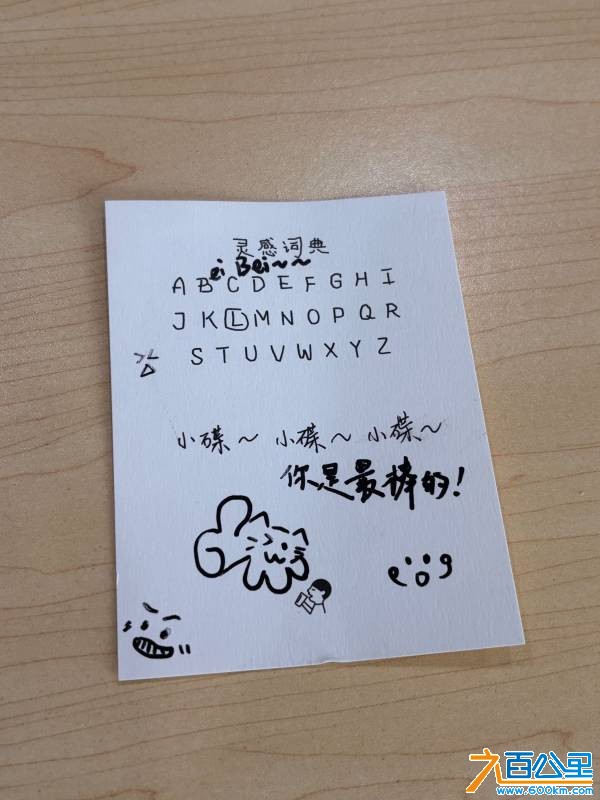 灵感词典
ei Bei~~
A B C D E F G H I
J K L M N O P Q R
S T U V W X Y Z
小碟～ 小碟～ 小碟～
你是最棒的！
六百公里
www.600km.com